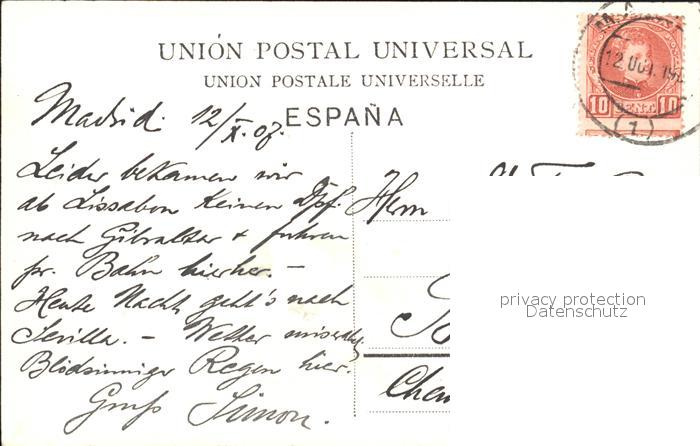 UNIÓN POSTAL UNIVERSAL
UNION POSTALE UNIVERSELLE
ESPAÑA
10 CENT. 10
12.OCT.
(1)
Madrid. 12/X.07.
Leider bekamen wir
ab Lissabon keinen Dpf.
nach Gibraltar + fuhren
pr. Bahn hierher. –
Heute Nacht geht's nach
Sevilla. – Wetter miserabel,
Blödsinniger Regen hier.
Gruß Simon.
Herrn
Chem
privacy protection
Datenschutz